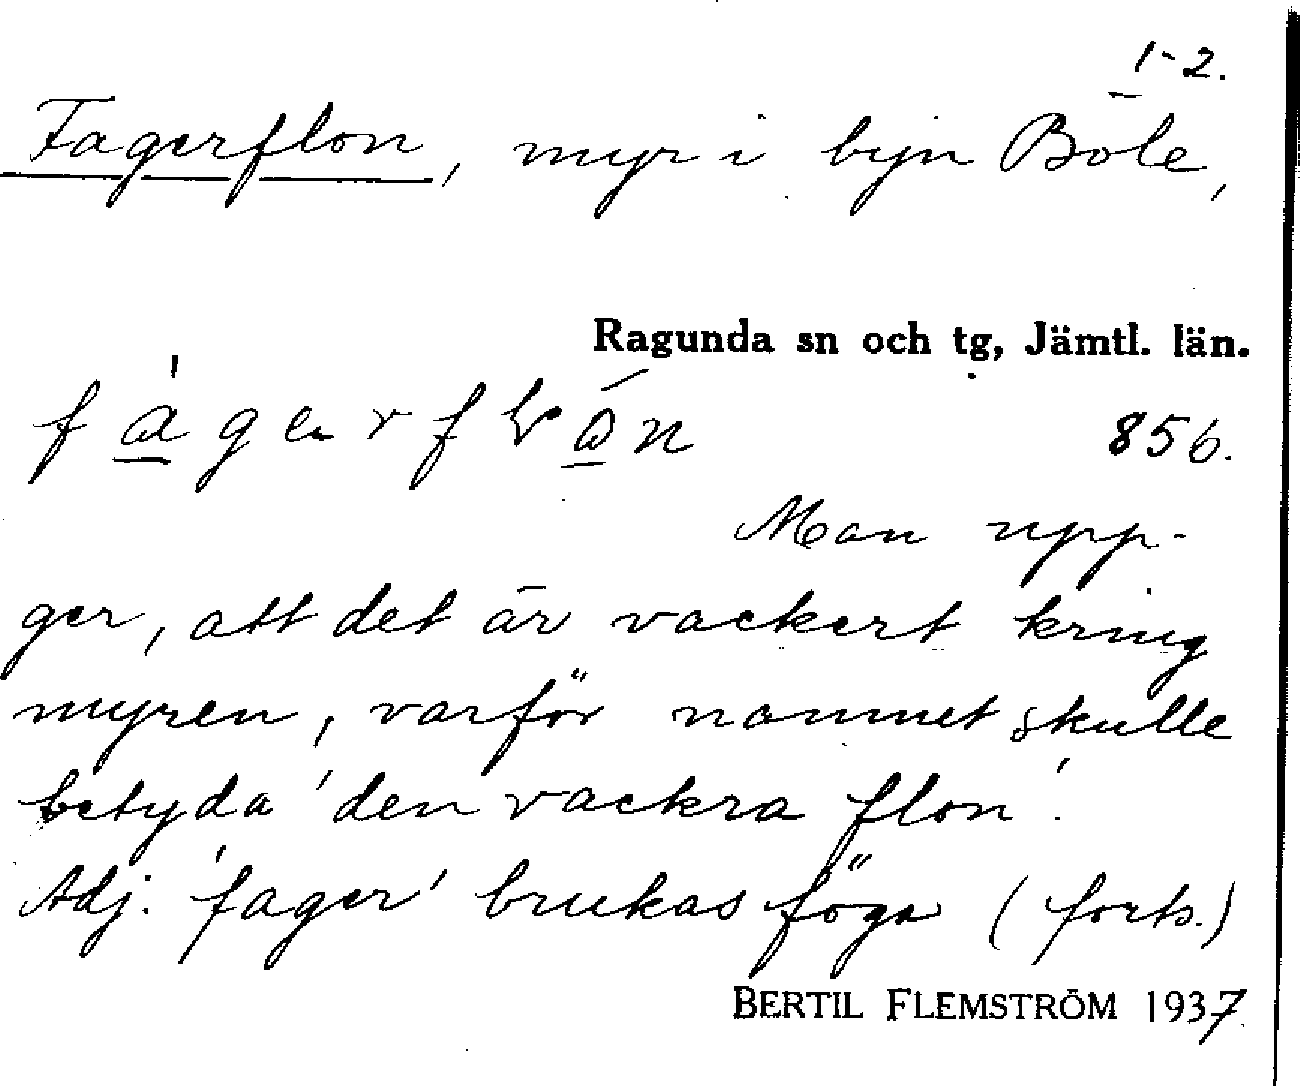 1-2.
Fagerflon, myr i byn Böle,
Ragunda sn och tg, Jämtl. län.
856.
Man upp-
ger, att det är vackert kring
myren, varför namnet skulle
betyda 'den vackra flon'.
Adj. 'fager' brukas föga (forts.)
BERTIL FLEMSTRÖM 1937